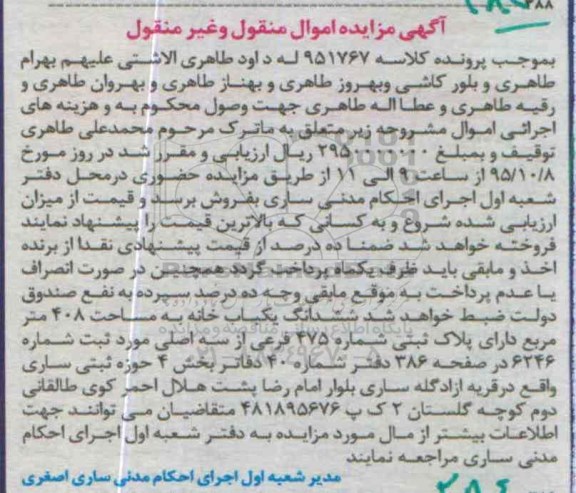 ۲۸۸
آگهی مزایده اموال منقول وغیر منقول
بموجب پرونده کلاسه ۹۵۱۷۶۷ له داود طاهری الاشتی علیهم بهرام
طاهری و بلور کاشی وبهروز طاهری و بهناز طاهری و بهروان طاهری و
رقیه طاهری و عطااله طاهری جهت وصول محکوم به و هزینه های
اجرائی اموال مشروحه زیر متعلق به ماترک مرحوم محمدعلی طاهری
توقیف و بمبلغ ریال ارزیابی و مقرر شد در روز مورخ
۹۵/۱۰/۸ از ساعت ۹ الی ۱۱ از طریق مزایده حضوری درمحل دفتر
شعبه اول اجرای احکام مدنی ساری بفروش برسد و قیمت از میزان
ارزیابی شده شروع و به کسانی که بالاترین قیمت را پیشنهاد نمایند
فروخته خواهد شد ضمنا ده درصد از قیمت پیشنهادی نقدا از برنده
اخذ و مابقی باید ظرف یکماه پرداخت گردد همچنین در صورت انصراف
یا عدم پرداخت به موقع مابقی وجه ده درصد سپرده به نفع صندوق
دولت ضبط خواهد شد ششدانگ یکباب خانه به مساحت ۴۰۸ متر
پایگاه اطلاع رسانی مناقصه و مزایده
مربع دارای پلاک ثبتی شماره ۴۷۵ فرعی از سه اصلی مورد ثبت شماره
۶۲۴۶ در صفحه ۳۸۶ دفتر شماره ۴۰ دفاتر بخش ۴ حوزه ثبتی ساری
واقع درقریه ازادگله ساری بلوار امام رضا پشت هلال احمر کوی طالقانی
دوم کوچه گلستان ۲ ک پ ۴۸۱۸۹۵۶۷۶ متقاضیان می توانند جهت
اطلاعات بیشتر از مال مورد مزایده به دفتر شعبه اول اجرای احکام
مدنی ساری مراجعه نمایند
مدیر شعبه اول اجرای احکام مدنی ساری اصغری